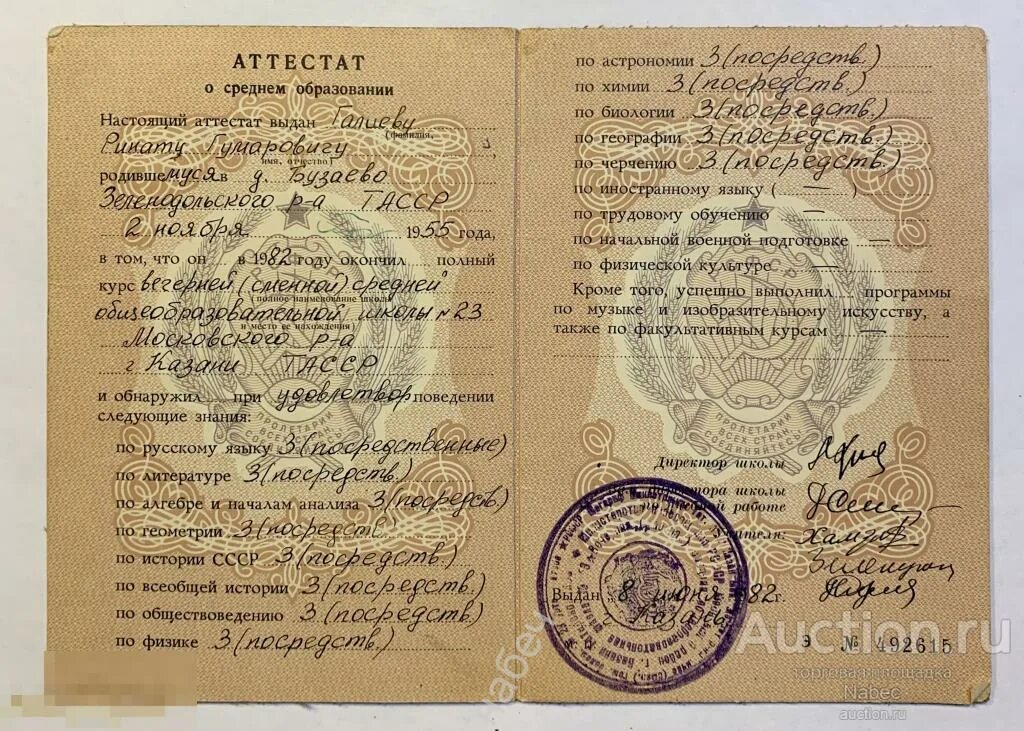 АТТЕСТАТ
о среднем образовании
Настоящий аттестат выдан Галиеву
(фамилия,
Ринату Гумаровичу
имя, отчество)
родившемуся в д. Бузаево
Зеленодольского р-а ТАССР
2 ноября 1955 года,
в том, что он в 1982 году окончил полный
курс вечерней (сменной) средней
(полное наименование школы
общеобразовательной школы N 23
и место ее нахождения)
Московского р-а
г Казани ТАССР
и обнаружил при удовлетвор поведении
следующие знания:
по русскому языку 3 (посредственные)
по литературе 3 (посредств.)
по алгебре и началам анализа 3 (посредств.)
по геометрии 3 (посредств.)
по истории СССР 3 (посредств.)
по всеобщей истории 3 (посредств.)
по обществоведению 3 (посредств.)
по физике 3 (посредств.)
ПРОЛЕТАРИИ
ВСЕХ СТРАН
СОЕДИНЯЙТЕСЬ
по астрономии 3 (посредств.)
по химии 3 (посредств.)
по биологии 3 (посредств.)
по географии 3 (посредств.)
по черчению 3 (посредств.)
по иностранному языку ( — )
по трудовому обучению —
по начальной военной подготовке —
по физической культуре —
Кроме того, успешно выполнил программы
по музыке и изобразительному искусству, а
также по факультативным курсам —
ПРОЛЕТАРИИ
ВСЕХ СТРАН
СОЕДИНЯЙТЕСЬ
Директор школы
школы
работе
Выдан „ 8 июня 1982 г.
г. Казань
Э № 492615
Auction.ru
торговая площадка
Nabec
auction.ru